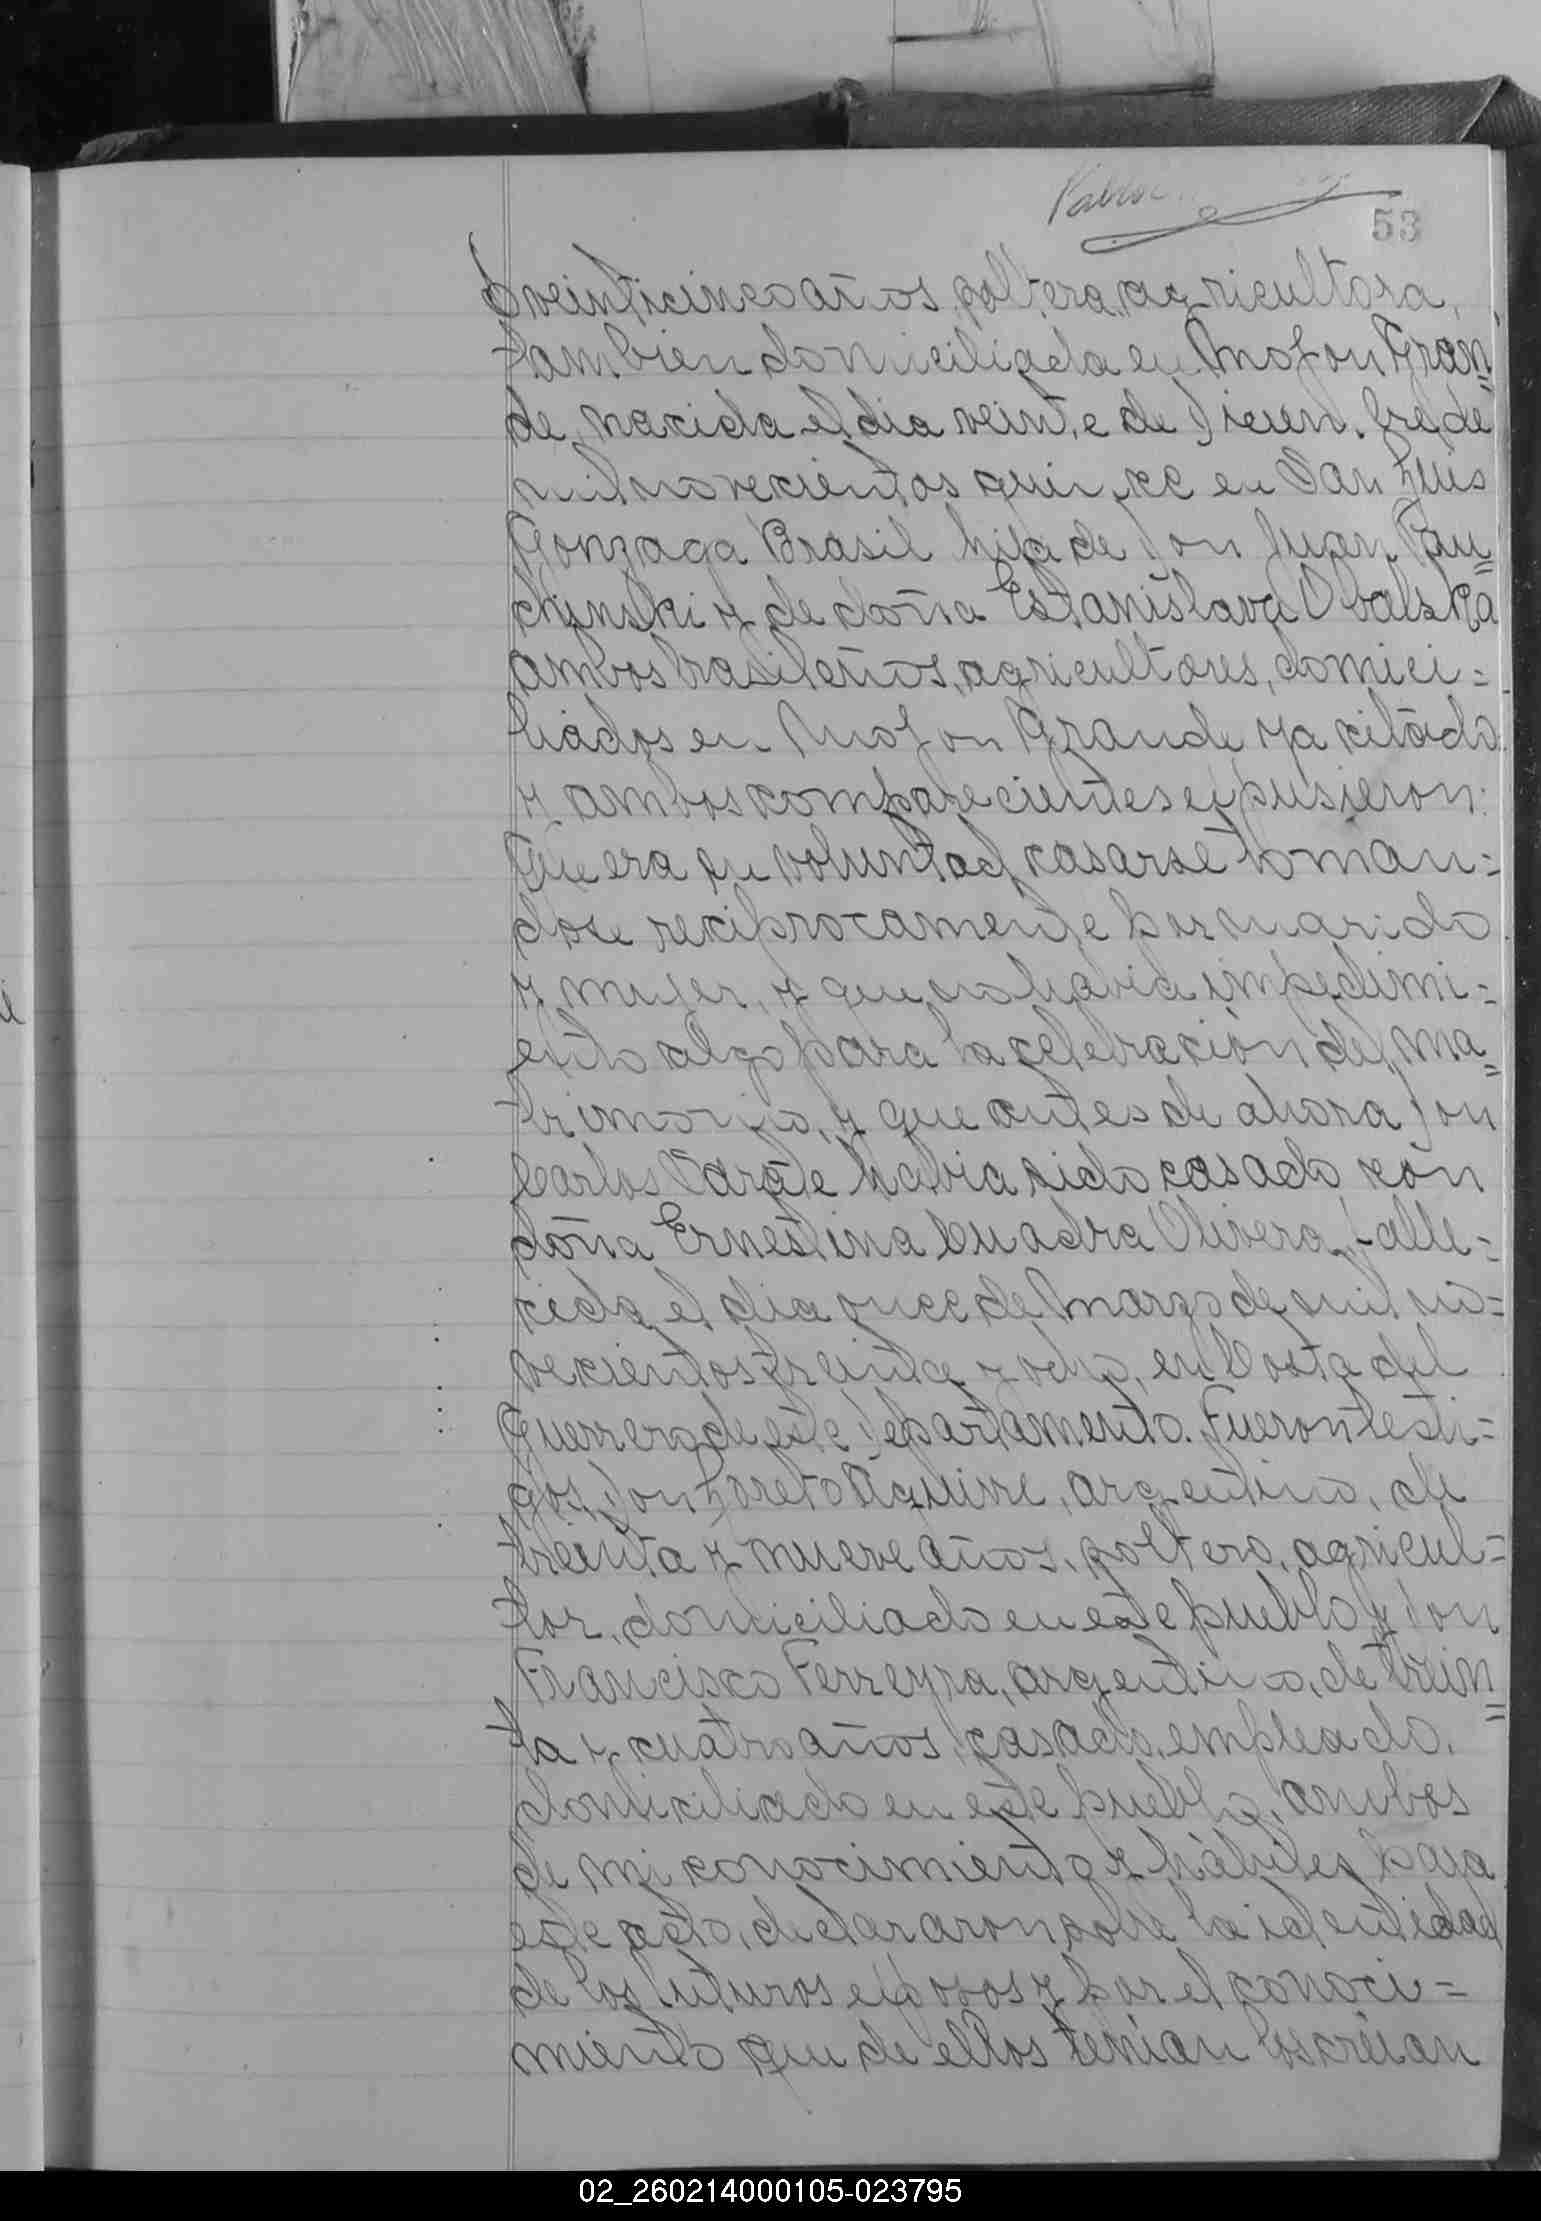 53
veinticinco años, soltera, agricultora,
tambien domiciliada en Mojon Gran=
de, nacida el dia veinte de Diciembre de
mil novecientos quince en San Luis
Gonzaga Brasil hija de Don Juan
y de doña Estanislava
ambos brasileños, agricultores, domici=
liados en Mojon Grande ya citado
y ambos comparecientes expusieron:
Que era su voluntad casarse toman=
dose reciprocamente por marido
y mujer, y que no habia impedimi=
ento algo para la celebracion del ma=
trimonio, y que antes de ahora Don
Carlos Zarate habia sido casado con
doña Ernestina Cuadra Olivera, falle=
cida el dia once de Marzo de mil no=
vecientos treinta y ocho, en Costa del
Guerrero de este Departamento. Fueron testi=
gos, Don Loreto Aguirre, argentino, de
treinta y nueve años, soltero, agricul=
tor, domiciliado en este pueblo y Don
Francisco Ferreyra, argentino, de trein=
ta y cuatro años, casado, empleado,
domiciliado en este pueblo, ambos
de mi conocimiento y hábiles para
este acto, declararon sobre la identidad
de los futuros esposos y por el conoci=
miento que de ellos tenian los creian
02_260214000105-023795